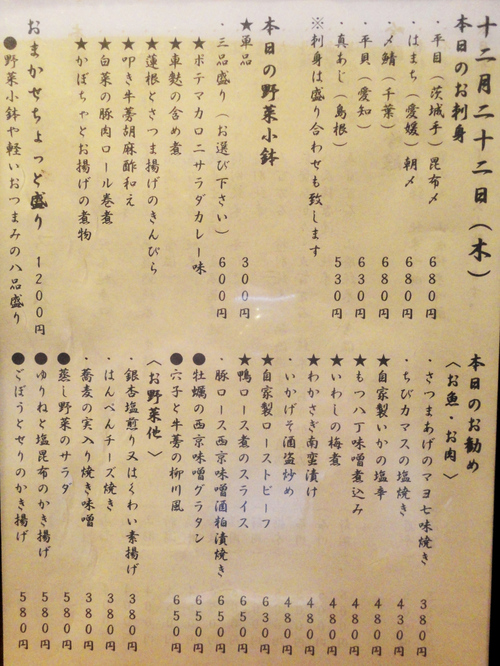 十二月二十二日(木)
本日のお刺身
・平目(茨城手)昆布〆 680円
・はまち(愛媛)朝〆 680円
・〆鯖(千葉) 680円
・平貝(愛知) 630円
・真あじ(島根) 530円
※刺身は盛り合わせも致します
本日の野菜小鉢
★単品 300円
・三品盛り(お選び下さい) 600円
★ポテマカロニサラダカレー味
★車麩の含め煮
★蓮根とさつま揚げのきんぴら
★叩き牛蒡胡麻酢和え
★白菜の豚肉ロール巻煮
★かぼちゃとお揚げの煮物
おまかせちょっと盛り 1200円
●野菜小鉢や軽いおつまみの八品盛り
本日のお勧め
〈お魚・お肉〉
・さつまあげのマヨ七味焼き 380円
・ちびカマスの塩焼き 430円
★自家製いかの塩辛 480円
★もつ八丁味噌煮込み 480円
★いわしの梅煮 480円
★わかさぎ南蛮漬け 480円
・いかげそ酒盗炒め 480円
★自家製ローストビーフ 630円
★鴨ロース煮のスライス 650円
・豚ロース西京味噌酒粕漬焼き 650円
●牡蠣の西京味噌グラタン 650円
●穴子と牛蒡の柳川風 650円
〈お野菜他〉
・銀杏塩煎り又はくわい素揚げ 380円
・はんぺんチーズ焼き 380円
・蕎麦の実入り焼き味噌 380円
●蒸し野菜のサラダ 580円
●ゆりねと塩昆布のかき揚げ 580円
●ごぼうとせりのかき揚げ 580円